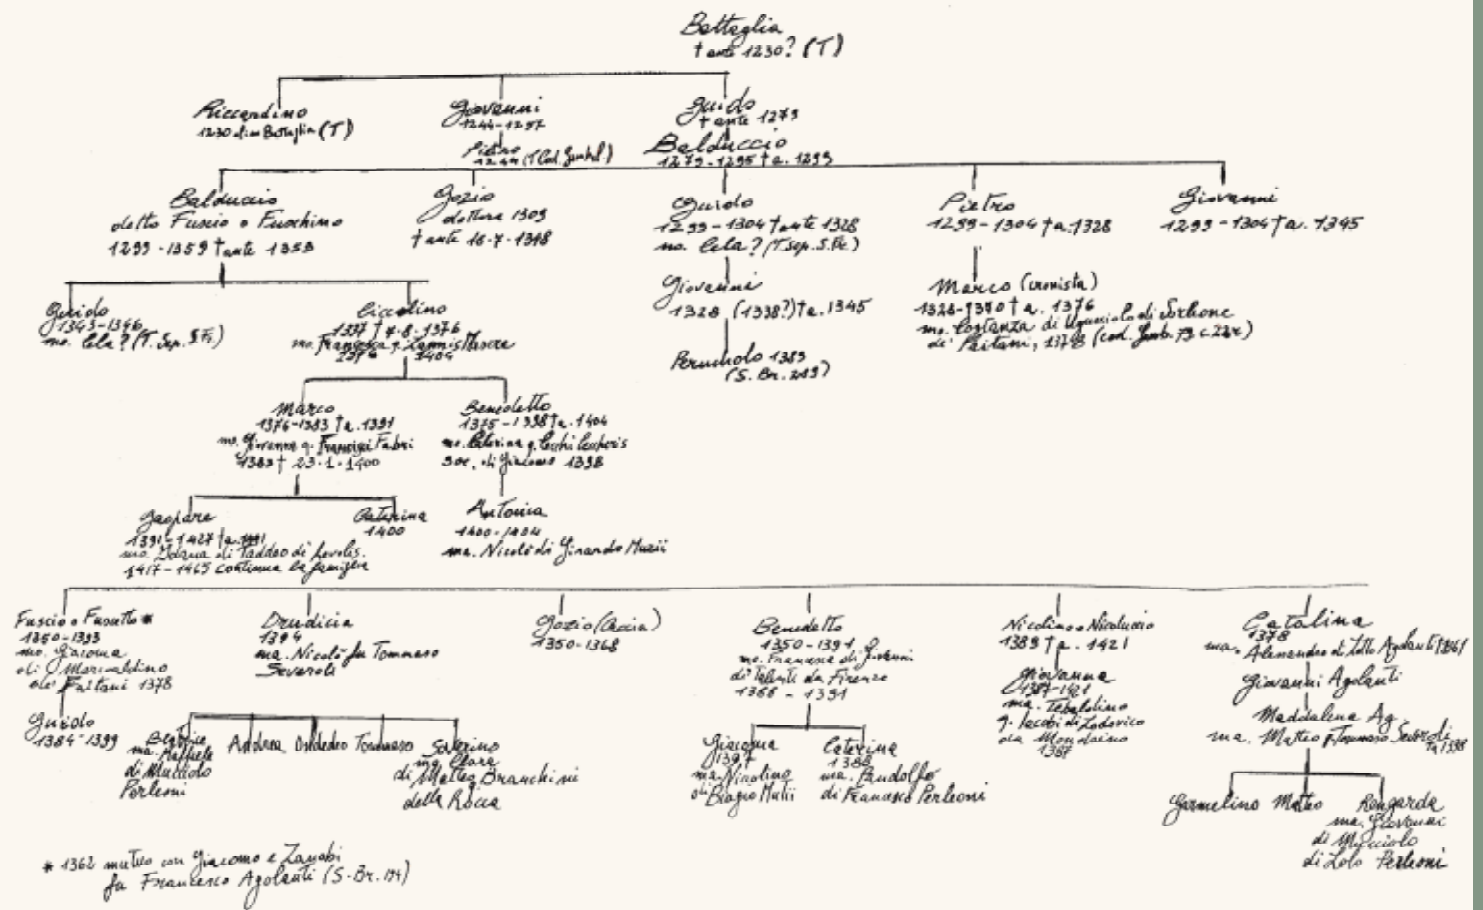 Battaglia
† ante 1230? (T)
Riccardino
1230 di m Battaglia (T)
Giovanni
1244-1257
Pietro
1244 (T Cod. Gambal.)
Guido
† ante 1279
Balduccio
1279-1295 † a. 1299
Balduccio
detto Fuscio o Fuschino
1299-1359 † ante 1353
Gozio
dottore 1309
† ante 18-7-1348
Guido
1299-1304 † ante 1328
mo. Cela? (T. Sep. S. Fr.)
Pietro
1299-1304 † a. 1328
Giovanni
1299-1304 † a. 1345
Guido
1343-1346
mo. Cela? (T. Sep. S. Fr.)
Ciccolino
1337 † 4.8.1376
mo. Francesca q.
1376 1404
Giovanni
1328 (1338?) † a. 1345
Perucholo 1383
(S. Br. 219)
Marco (cronista)
1328-1350 † a. 1376
mo. Costanza di
de' Faitani, 1378
Marco
1376-1383 † a. 1391
mo. Giovanna q. Francisci Fabri
1383 † 23.1.1400
Benedetto
1375-1398 † a. 1404
mo. Caterina q.
soc. di Giacomo 1398
Gaspare
1391-1427 † a.
mo. di Taddeo di
1417-1465 continua la famiglia
Caterina
1400
Antonia
1400-1404
ma. Nicolò di Girardo Muzii
Fuscio o Fuscutto *
1350-1393
mo. Giacoma
di Marcualdino
de' Faitani 1378
Guido
1384-1399
Drudicia
1394
ma. Nicolò fu Tommaso
Severoli
Beatrice
ma. Raffaele
di Mucciolo
Perleoni
Andrea
Tommaso
Soterino
ma. Clara
di Matteo Branchini
della Rocca
Gozio
1350-1368
Benedetto
1350-1391
mo. Francesca di Giovanni
di Talento da Firenze
1368-1391
Giacoma
1397
ma. Nicolino
di Biagio Mutii
Caterina
1388
ma. Pandolfo
di Francesco Perleoni
Nicolino o Nicoluccio
1389 † a. 1421
Giovanna
1387-1421
ma. Tebaldino
q. Jacobi di Lodovico
da Mondaino
1387
Catalina
1378
ma. Alessandro di Lotto Agolanti
Giovanni Agolanti
Maddalena Ag.
ma. Matteo q. Tommaso Severoli
Garmelino
Matteo
Rengarda
ma. Giovanni
di Mucciolo
di Lolo Perleoni
* 1362 mutuo con Giacomo e Zanobi
fu Francesco Agolanti (S. Br. 194)